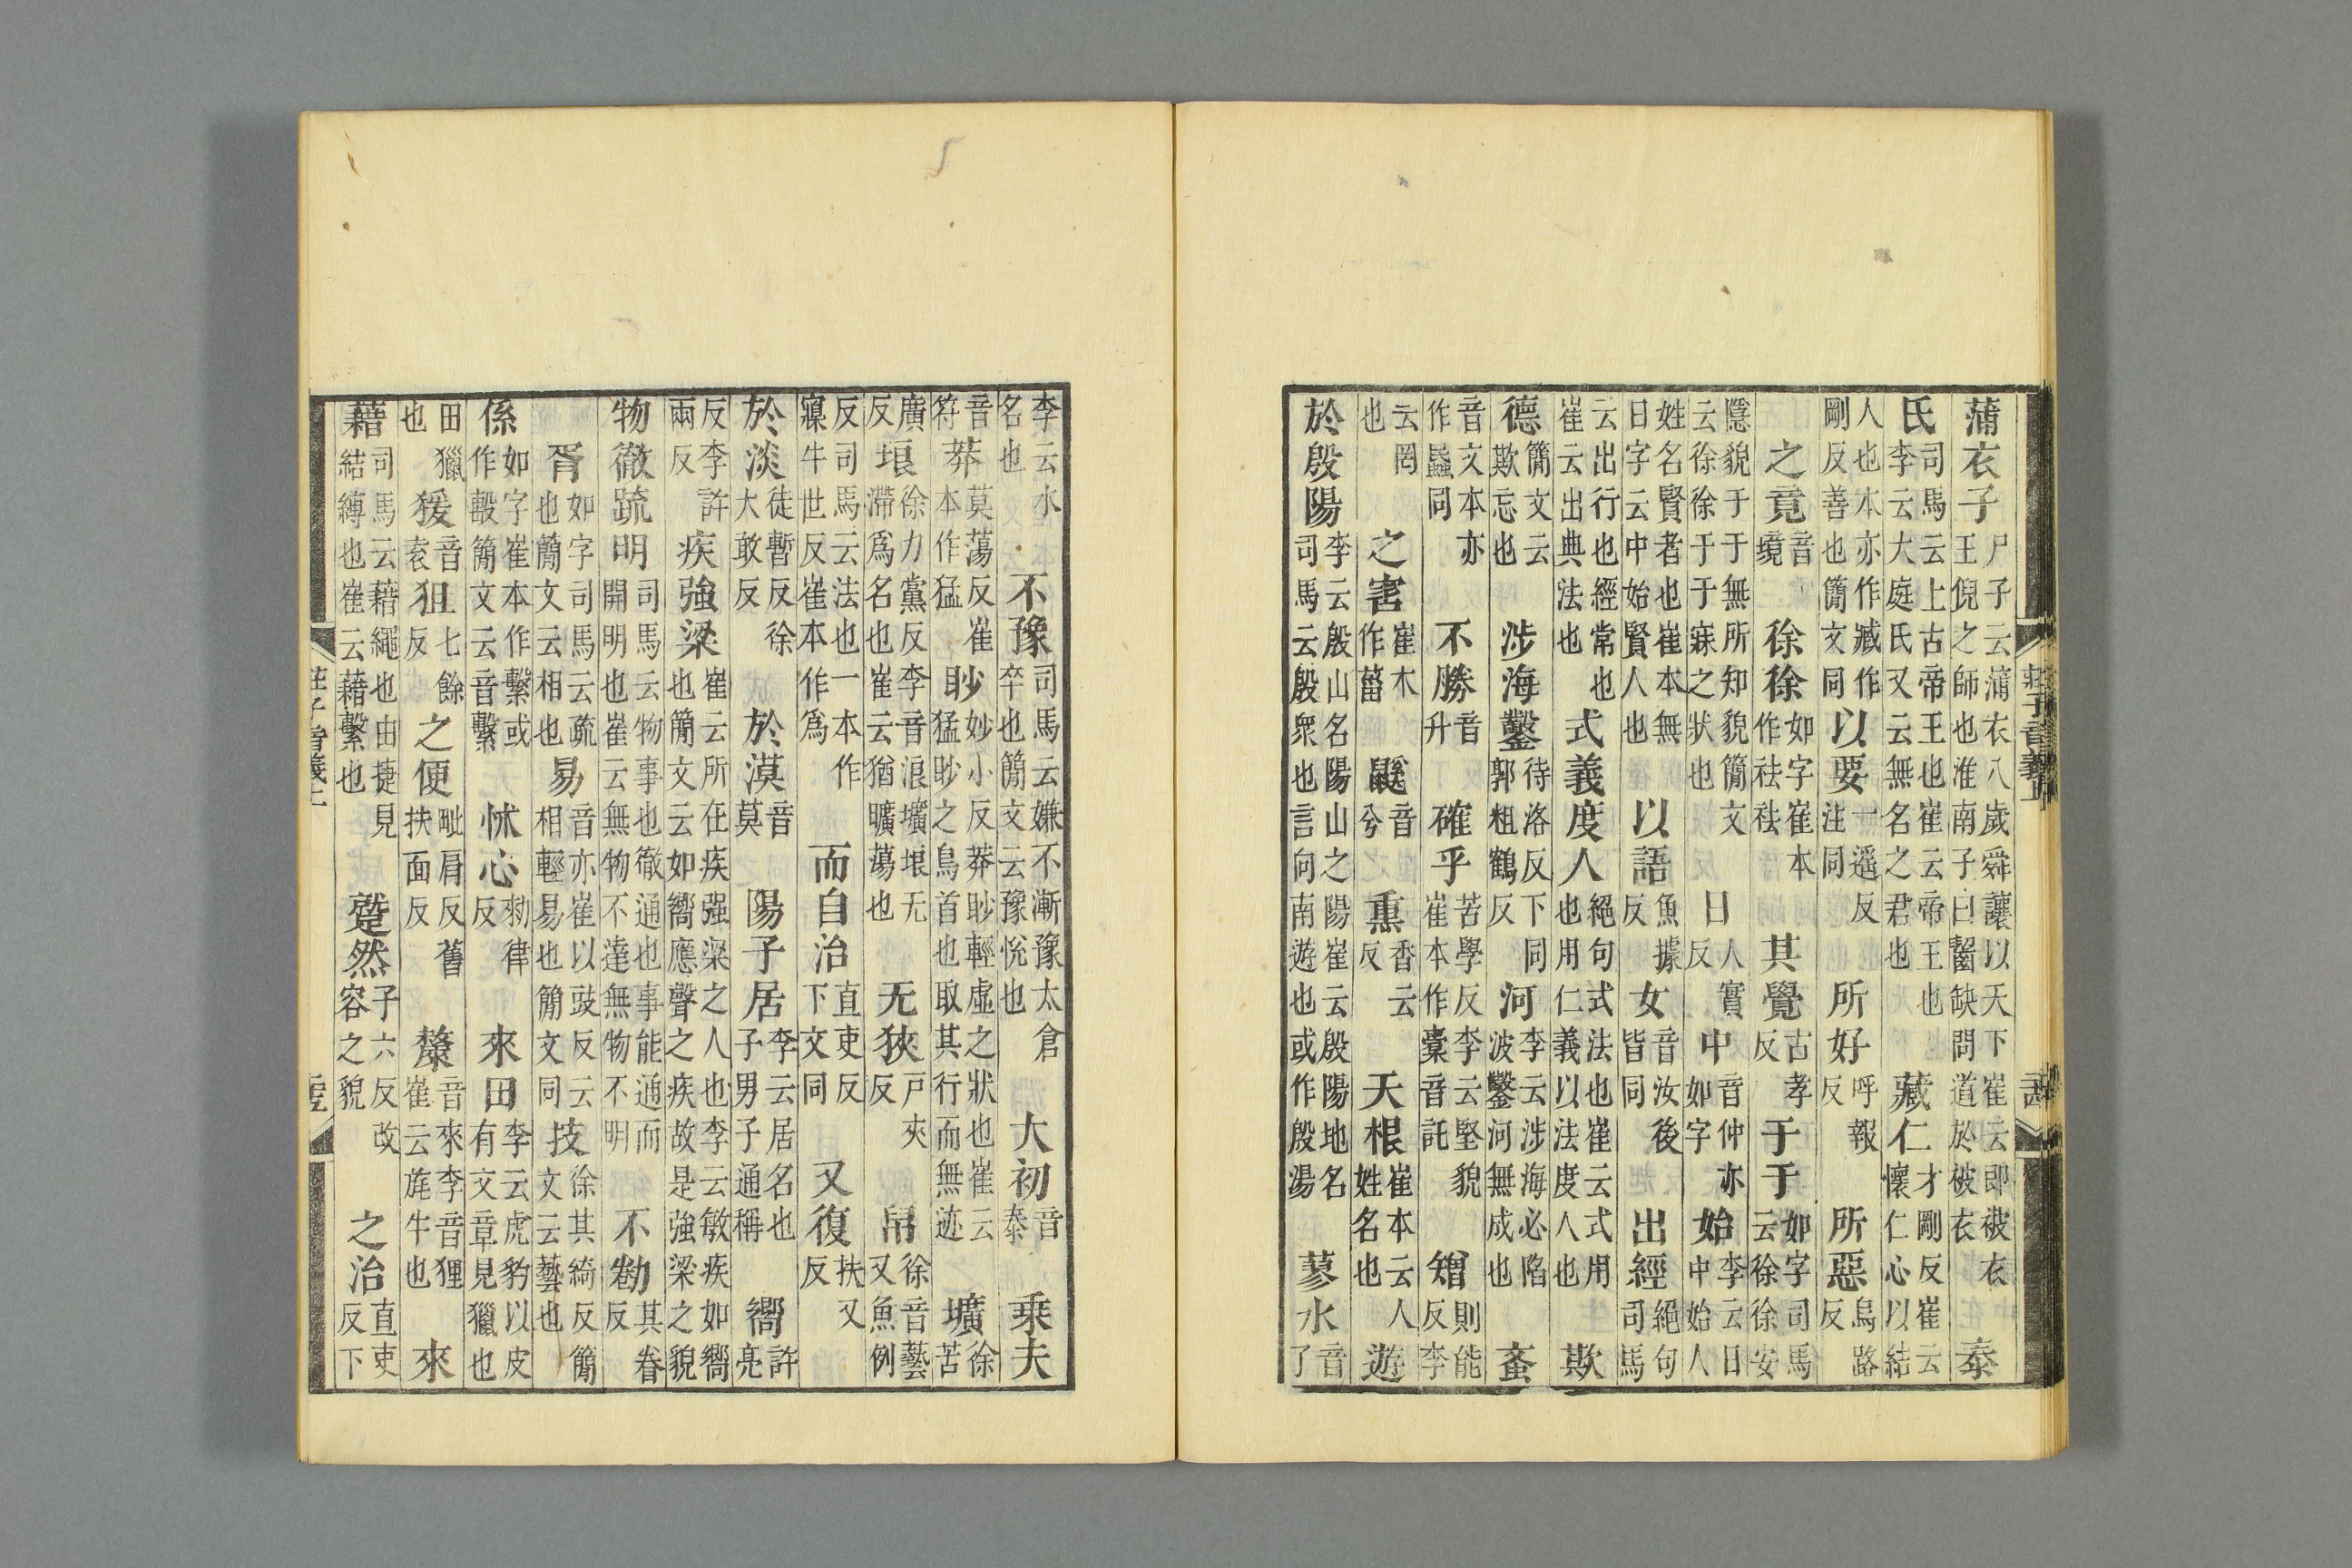 蒲衣子尸子云蒲衣八歲舜讓以天下崔云即被衣王倪之師也淮南子曰齧缺問道於被衣泰
氏司馬云上古帝王也崔云帝王也李云大庭氏又云無名之君也藏仁才剛反崔云懷仁心以結
人也本亦作臧作剛反善也簡文同以要一遥反注同所好呼報反所惡烏路反
之竟音境徐徐如字崔本作袪袪其覺古孝反于于如字司馬云徐徐安
隱貌于于無所知貌簡文云徐徐于于寐之狀也日人實反中音仲亦如字始李云日中始人
姓名賢者也崔本無日字云中始賢人也以語魚據反女音汝後皆同出經絕句司馬
云出行也經常也崔云出典法也式義度人絕句式法也崔云式用也用仁義以法度人也欺
德簡文云欺忘也涉海鑿待洛反下同郭粗鶴反河李云涉海必陷波鑿河無成也蚉
音文本亦作蟁同不勝音升確乎苦學反李云堅貌崔本作橐音託矰則能反李
云罔也之害崔木作菑鼷音兮熏香云反天根崔本云人姓名也遊
於殷陽李云殷山名陽山之陽崔云殷陽地名司馬云殷衆也言向南遊也或作殷湯蓼水音了
莊子音義上
李云水名也不豫司馬云嫌不漸豫太倉卒也簡文云豫悅也大初音泰乗夫
音符莽莫蕩反崔本作猛眇妙小反莽眇輕虛之狀也崔云猛眇之鳥首也取其行而無迹壙徐苦
廣反埌徐力黨反李音浪壙埌无滯爲名也崔云猶曠蕩也无狹戶夾反帠徐音藝又魚例
反司馬云法也一本作寱牛世反崔本作爲而自治直吏反下文同又復扶又反
於淡徒暫反徐大敢反於漠音莫陽子居李云居名也子男子通稱嚮許亮
反李許兩反疾強梁崔云所在疾强梁之人也李云敏疾如嚮也簡文云如嚮應聲之疾故是強梁之貌
物徹疏明司馬云物事也徹通也事能通而開明也崔云無物不達無物不明不勌其眷反
胥如字司馬云疏也簡文云相也易音亦崔以豉反云相輕易也簡文同技徐其綺反簡文云藝也
係如字崔本作繫或作轚簡文云音繫怵心勑律反來田李云虎豹以皮有文章見獵也
田獵也猨音袁狙七餘反之便毗肩反舊扶面反斄音來李音狸崔云旄牛也來
藉司馬云藉繩也由捷見結縛也崔云藉繫也蹵然子六反改容之貌之治直吏反下